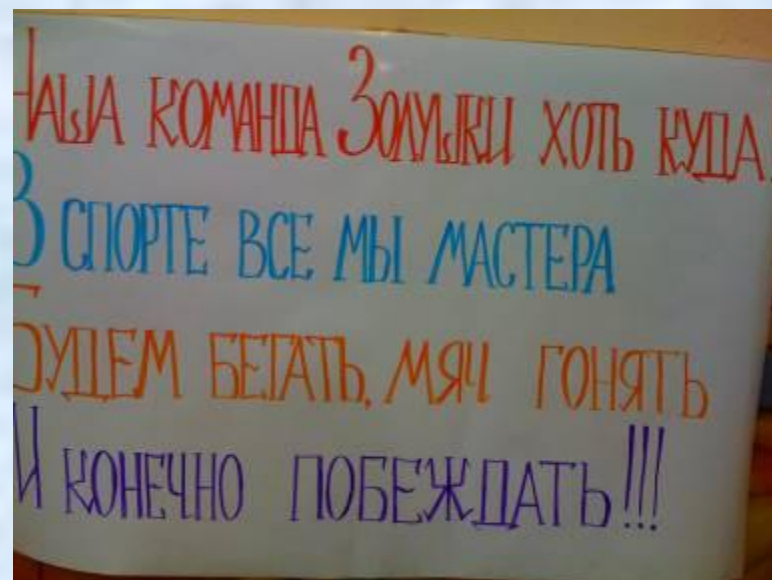 Наша команда Золушки хоть куда
В спорте все мы мастера
Будем бегать, мяч гонять
И конечно победждать!!!